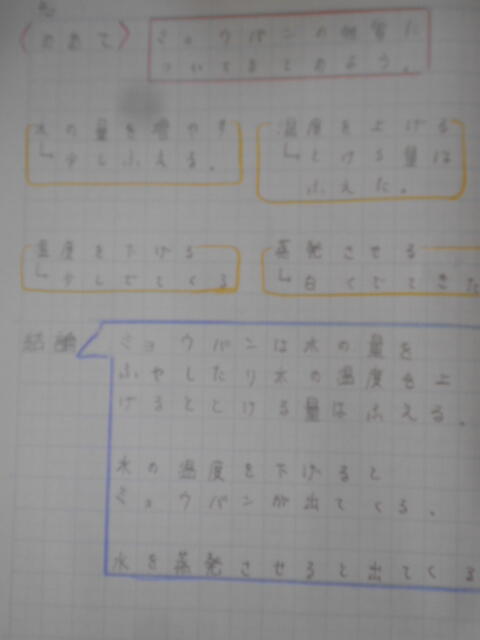 〈めあて〉
ミョウバンの物質に
ついてまとめよう。
水の量を増やす
↳少しふえる。
温度を上げる
↳とける量は
ふえた。
温度を下げる
↳少しでてくる
蒸発させる
↳白くでてきた
結論
ミョウバンは水の量を
ふやしたり水の温度を上
げるととける量はふえる。
水の温度を下げると
ミョウバンが出てくる、
水を蒸発させると出てくる